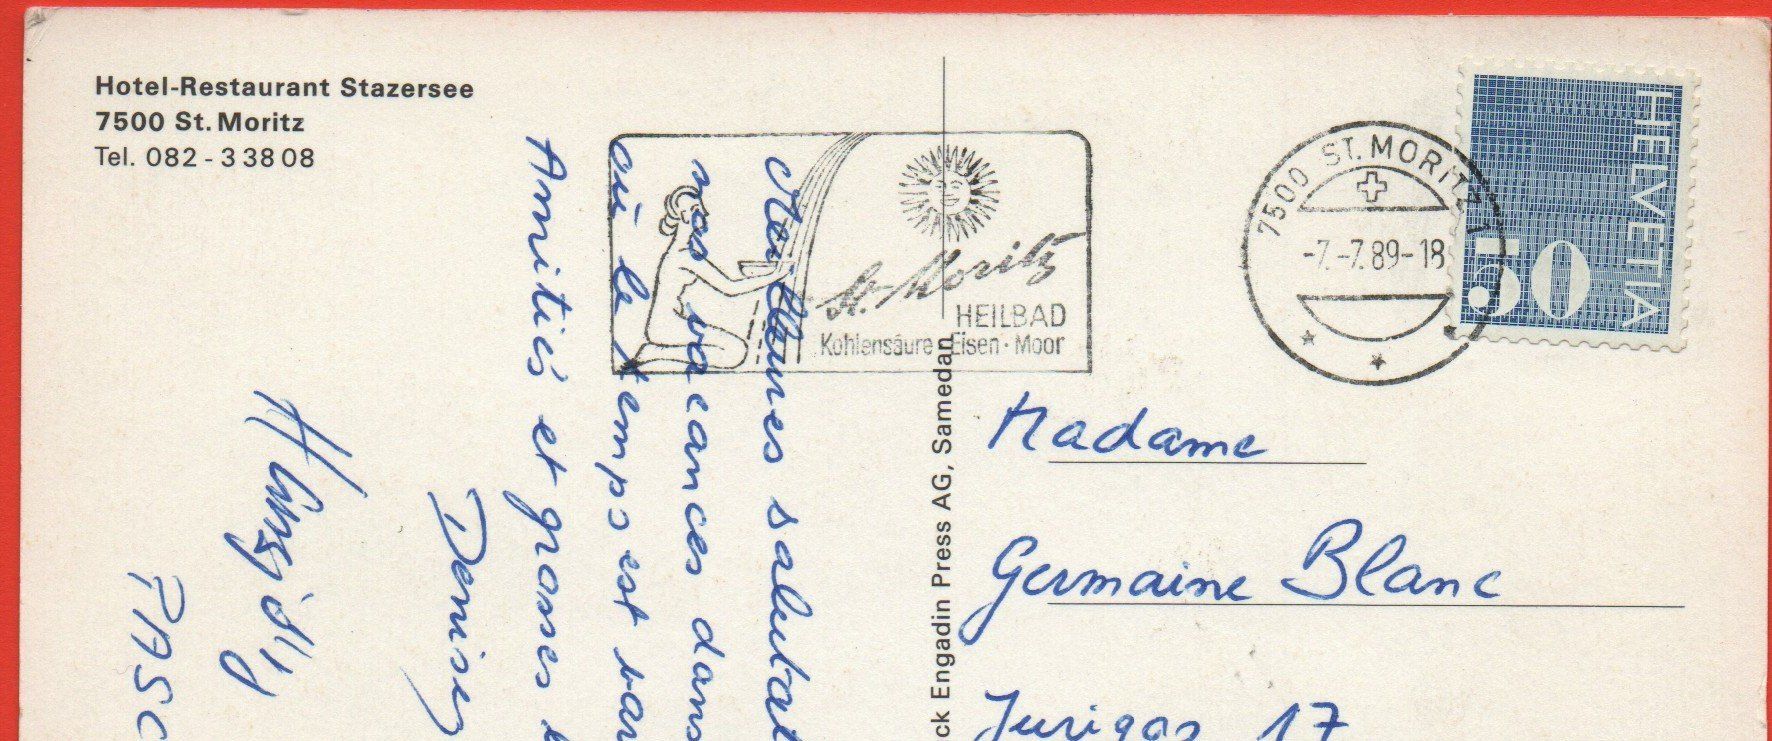 Hotel-Restaurant Stazersee
7500 St. Moritz
Tel. 082 - 3 38 08
St. Moritz
HEILBAD
Kohlensäure · Eisen · Moor
7500 ST. MORITZ 1
-7.-7.89-18
HELVETIA
50
salutat
nos vacances dans
où le temps est
Amitiés et grosses
PASC
ck Engadin Press AG, Samedan
Madame
Germaine Blanc
Jurigoz 17